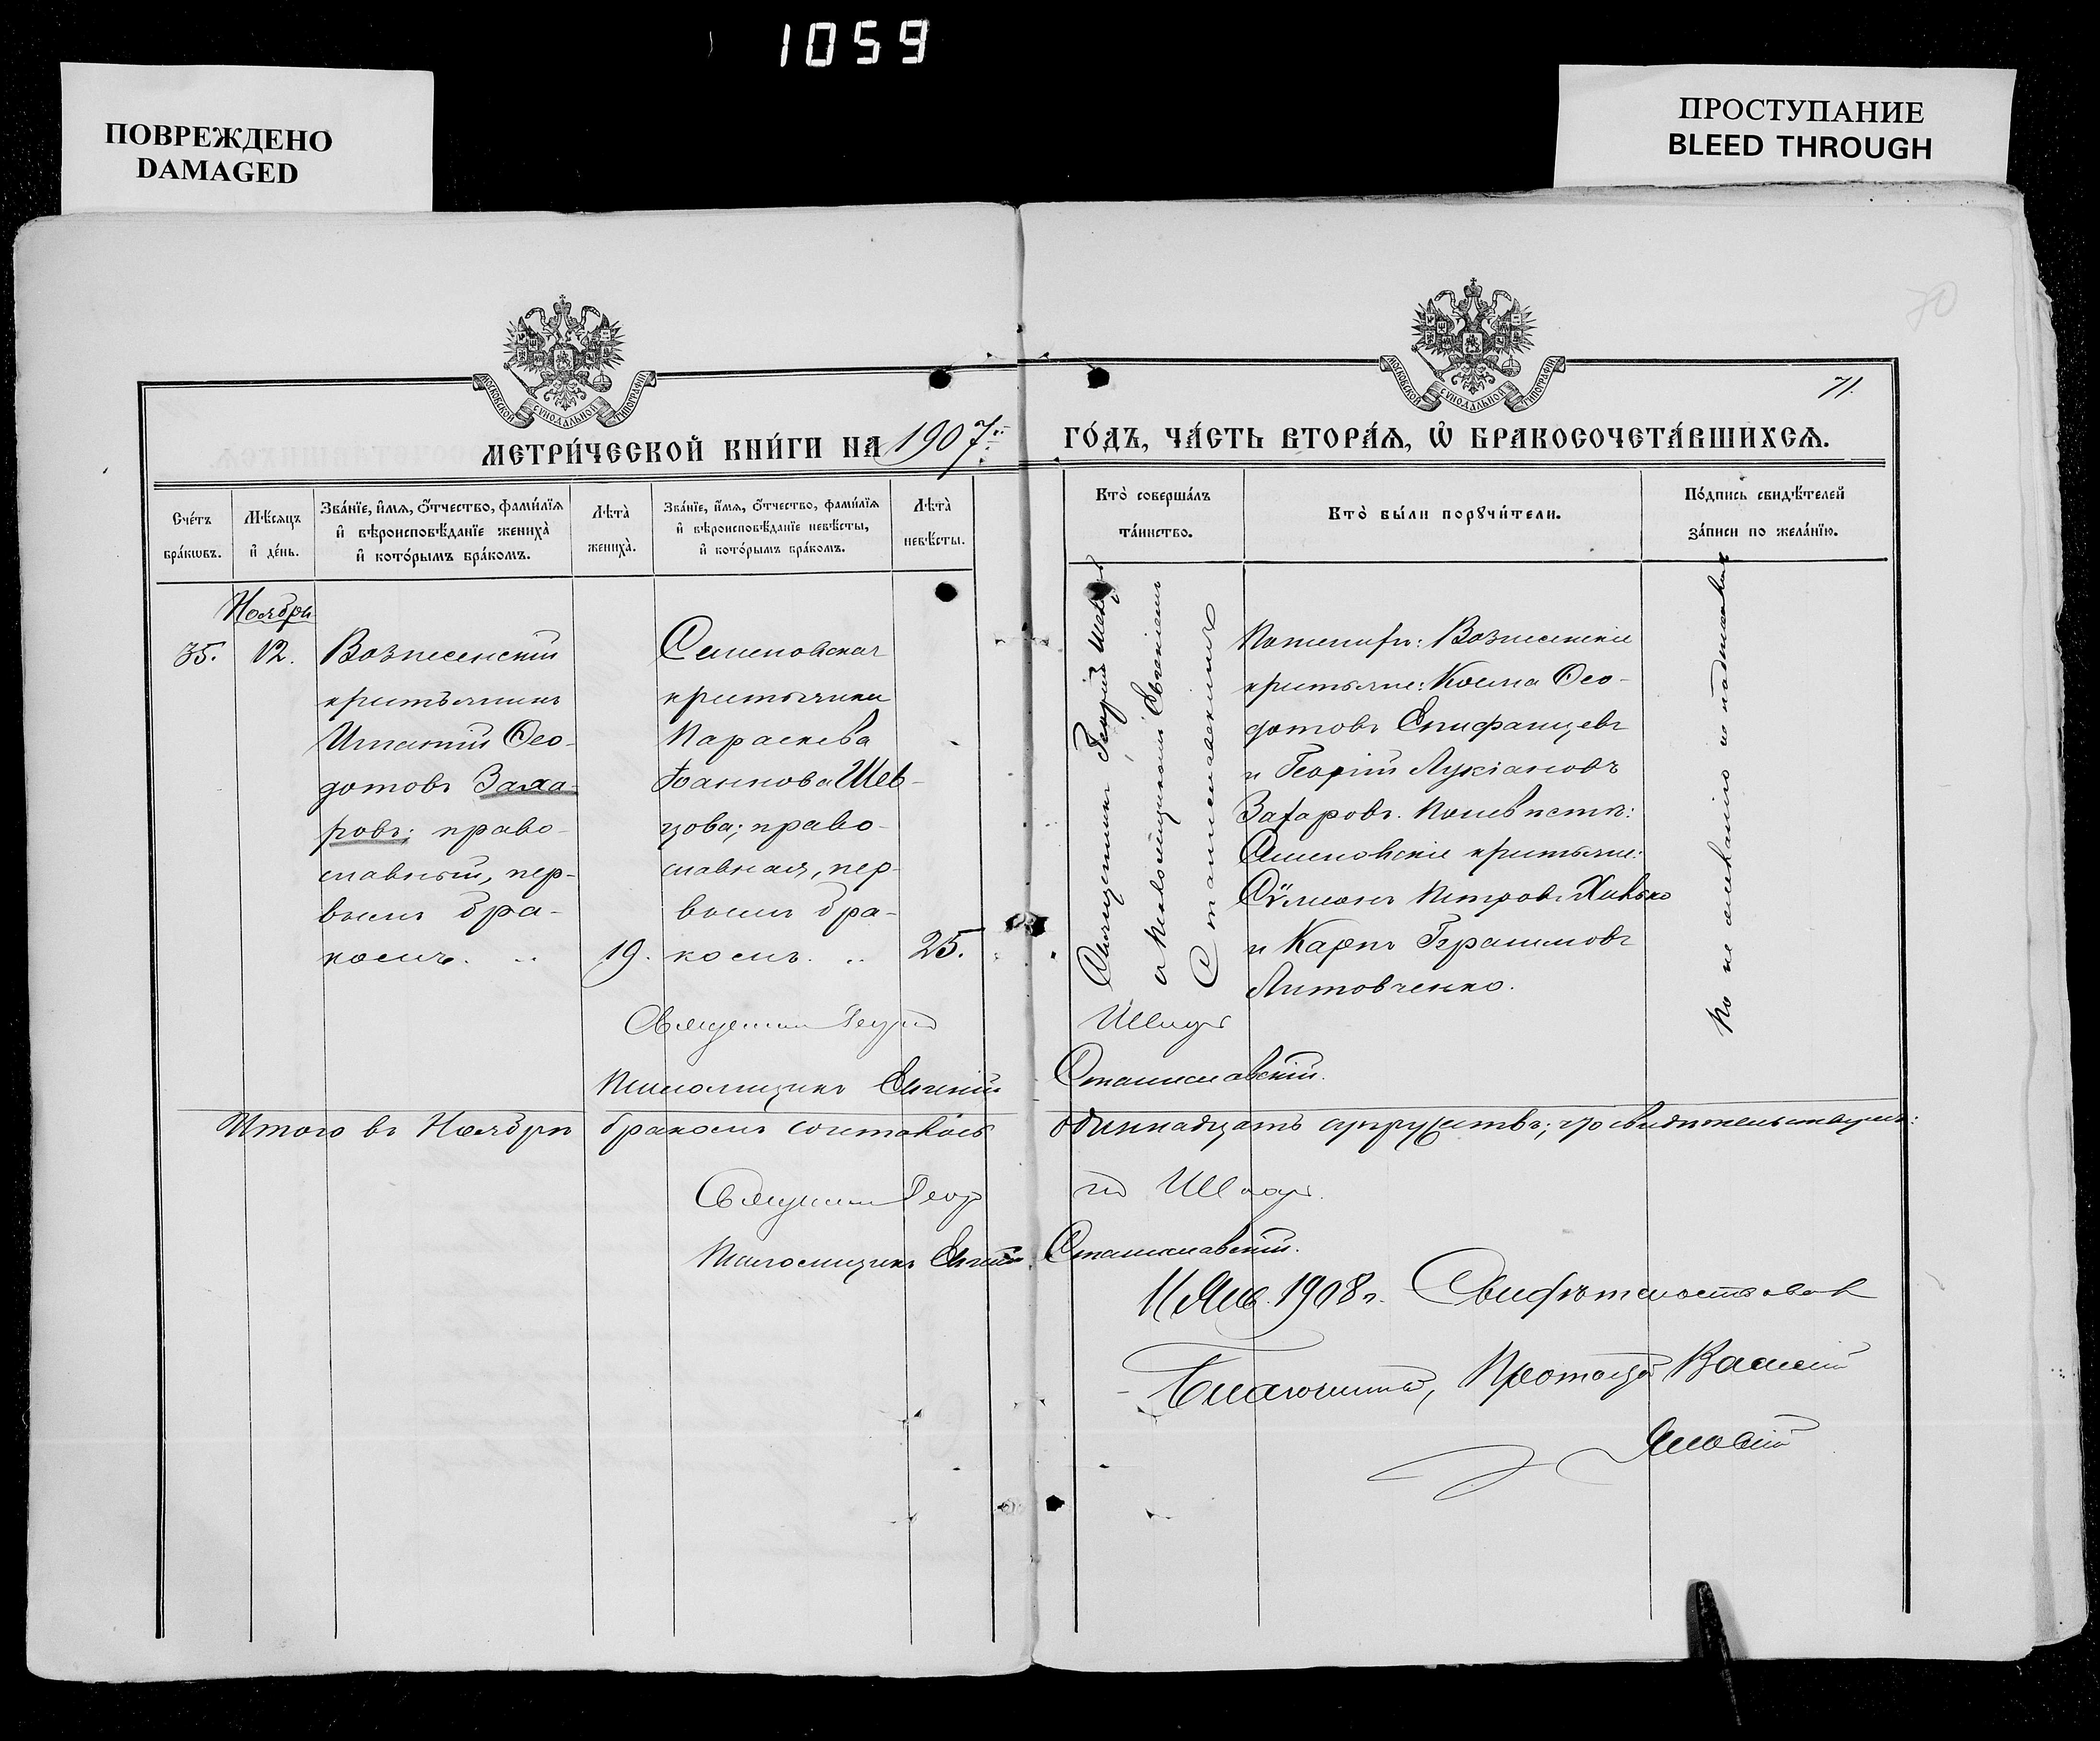 1059
ПОВРЕЖДЕНО
DAMAGED
ПРОСТУПАНИЕ
BLEED THROUGH
70
МОСКОВСКОЙ СѴНОДАЛЬНОЙ ТИПОГРАФІИ
МОСКОВСКОЙ СѴНОДАЛЬНОЙ ТИПОГРАФІИ
71.
МЕТРИ́ЧЕСКОЙ КНИ́ГИ НА 1907й
ГО́ДЪ, ЧА́СТЬ ВТОРА́Ѧ, Ѽ БРАКОСОЧЕТА́ВШИХСѦ.
Сче́тъ бра́кѡвъ.
Мѣ́сѧцъ и҆ де́нь.
Зва́нїе, и҆́мѧ, ѻ҆́тчество, фами́лїѧ и҆ вѣроисповѣ́данїе жениха̀ и҆ кото́рымъ бра́комъ.
Лѣта̀ жениха̀.
Зва́нїе, и҆́мѧ, ѻ҆́тчество, фами́лїѧ и҆ вѣроисповѣ́данїе невѣ́сты, и҆ кото́рымъ бра́комъ.
Лѣта̀ невѣ́сты.
Кто̀ соверша́лъ та́инство.
Кто̀ бы́ли порꙋчи́тели.
По́дпись свидѣ́телей за́писи по жела́нїю.
Ноябрь
35.
12.
Вознесенскій
крестьянинъ
Игнатій Ѳео-
дотовъ Заха-
ровъ; право-
славный, пер-
вымъ бра-
комъ. ..
19.
Семеновская
крестьянка
Параскева
Іоаннова Шев-
цова; право-
славная, пер-
вымъ бра-
комъ. ..
25.
Священникъ Георгій Швецъ
съ псаломщикомъ Евгеніемъ
Станиславскимъ
По женихѣ: Вознесенскіе
крестьяне: Косма Ѳео-
дотовъ Епифанцевъ
и Георгій Лукіановъ
Захаровъ. По невѣстѣ:
Семеновскіе крестьяне:
Сѵмеонъ Петровъ Хивько
и Карпъ Герасимовъ
Литовченко.
Священникъ Георгій Швецъ
Псаломщикъ Евгеній Станиславскій.
Итого въ Ноябрѣ бракомъ сочеталось одиннадцать супружествъ; что свидѣтельствуемъ:
Священникъ Георгій Швецъ.
Псаломщикъ Евгеній Станиславскій.
11 Янв. 1908 г. Свидѣтельствовалъ
Благочинный, Протоіерей Василій